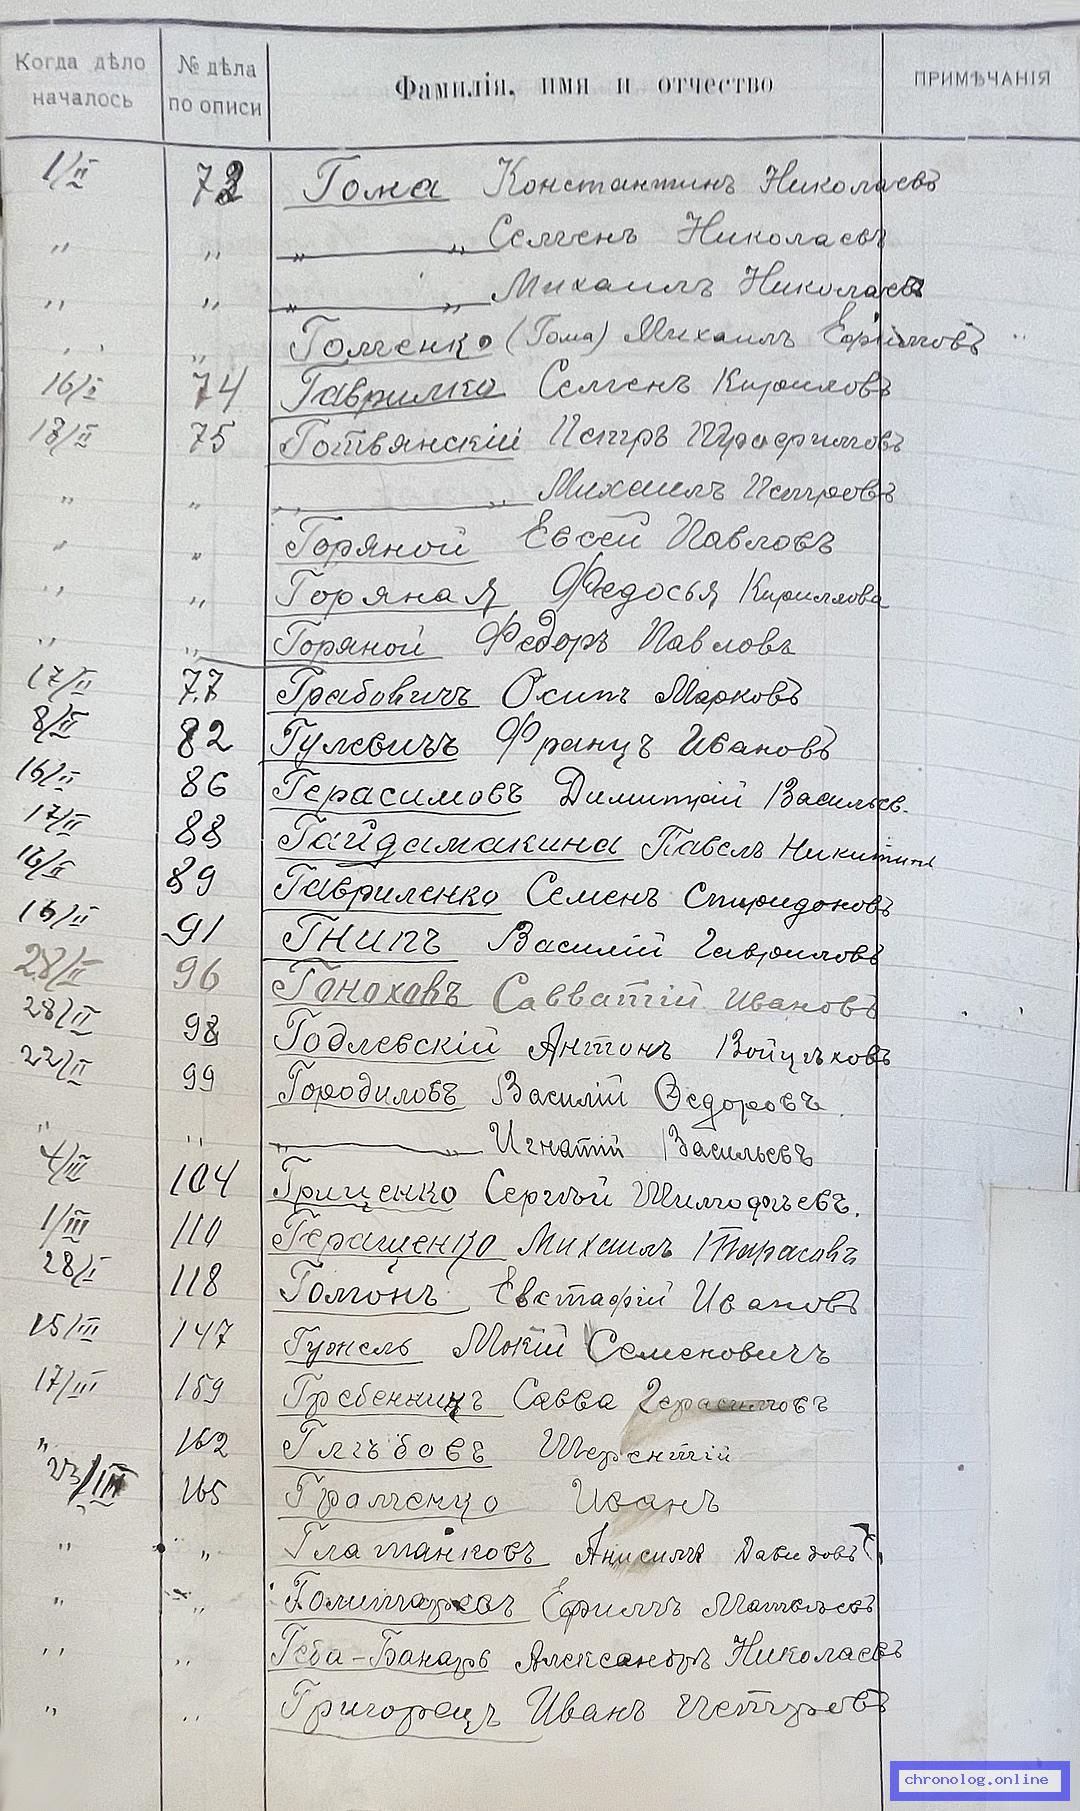 Когда дѣло началось № дѣла по описи Фамилія, имя и отчество ПРИМѢЧАНІЯ
1/II 73 Гома Константинъ Николаевъ
" " " " Семенъ Николаевъ
" " " " Михаилъ Николаевъ
" " Гоменко (Гома) Михаилъ Ефимовъ "
16/I 74 Гаврилко Семенъ Кириловъ
13/II 75 Готвянскій Петръ Трофимовъ
" " " " Михаилъ Петровъ
" " Горяной Евсей Павловъ
" " Горяная Федосья Кириллова
" " Горяной Федоръ Павловъ
17/II 77 Грабовичъ Осипъ Марковъ
8/II 82 Гулевичъ Францъ Ивановъ
16/II 86 Герасимовъ Димитрій Васильев.
17/II 88 Гайдамакина Павелъ Никитинъ
16/II 89 Гавриленко Семенъ Спиридоновъ
16/II 91 Гнипъ Василій Гавриловъ
28/II 96 Гоноховъ Савватій Ивановъ
28/II 98 Годлевскій Антонъ Войцѣховъ
22/II 99 Городиловъ Василій Ѳедоровъ.
" " " " Игнатій Васильевъ
4/III 104 Гриценко Сергѣй Тимофѣевъ.
1/III 110 Геращенко Михаилъ Тарасовъ
28/I 118 Гомонъ Евстафій Ивановъ
15/III 147 Гужель Мокій Семеновичъ
17/III 159 Гребенникъ Савва Герасимовъ
" 162 Глѣбовъ Терентій
23/III 165 Граменко Иванъ
" " Глатанковъ Анисимъ Давидовъ
" " Ефимъ Матвѣевъ
" " Геба-Банарь Александръ Николаевъ
" " Григорецъ Иванъ Петровъ
chronolog.online